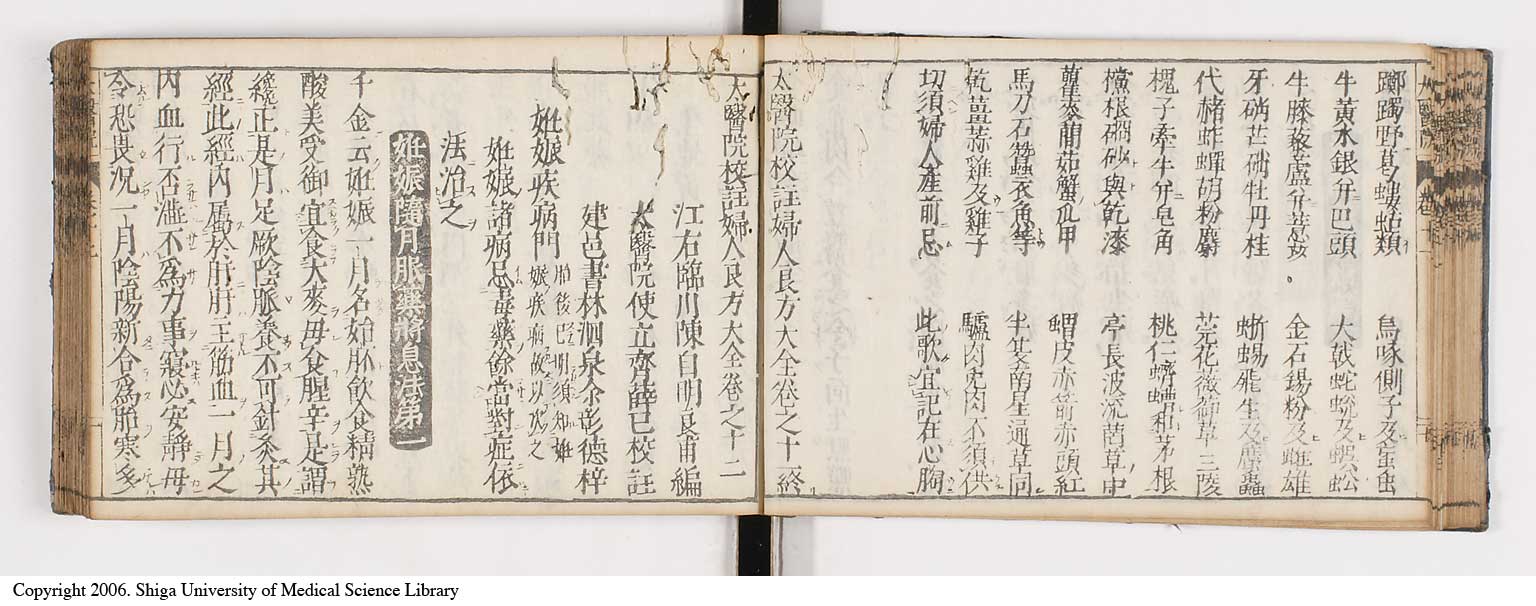 躑躅野葛螻蛄類　烏啄側子及虻虫
牛黃水銀并巴頭　大戟蛇蛻及蜈蚣
牛膝藜蘆并薏苡　金石錫粉及雌雄
牙硝芒硝牡丹桂　蜥蜴飛生及䗪蟲
代赭蚱蟬胡粉麝　芫花薇蘅草三陵
槐子牽牛并皂角　桃仁蠐螬和茅根
欓根硇砂與乾漆　亭長波流茵草中
瞿麥䕡茹蟹爪甲　蝟皮赤箭赤頭紅
馬刀石蠶衣魚等　半夏南星通草同
乾薑蒜雞及雞子　驢肉兔肉不須供
切須婦人產前忌　此歌宜記在心胸
太醫院校註婦人良方大全卷之十一終
太醫院校註婦人良方大全卷之十二
江右臨川陳自明良甫編
太醫院使立齋薛已校註
建邑書林泗泉余彰德梓
姙娠疾病門
胎後已明須知姙
娠疾病故以次之
姙娠諸病忌毒藥餘當對症依
法治之
姙娠隨月服藥將息法第一
千金云姙娠一月名始胚飲食精熟
酸美受御宜食大麥毋食腥辛是謂
纔正是月足厥陰脈養不可針灸其
經此經內屬於肝肝主筋血一月之
內血行否澁不為力事寢必安靜毋
令恐畏況一月陰陽新合為胎寒多